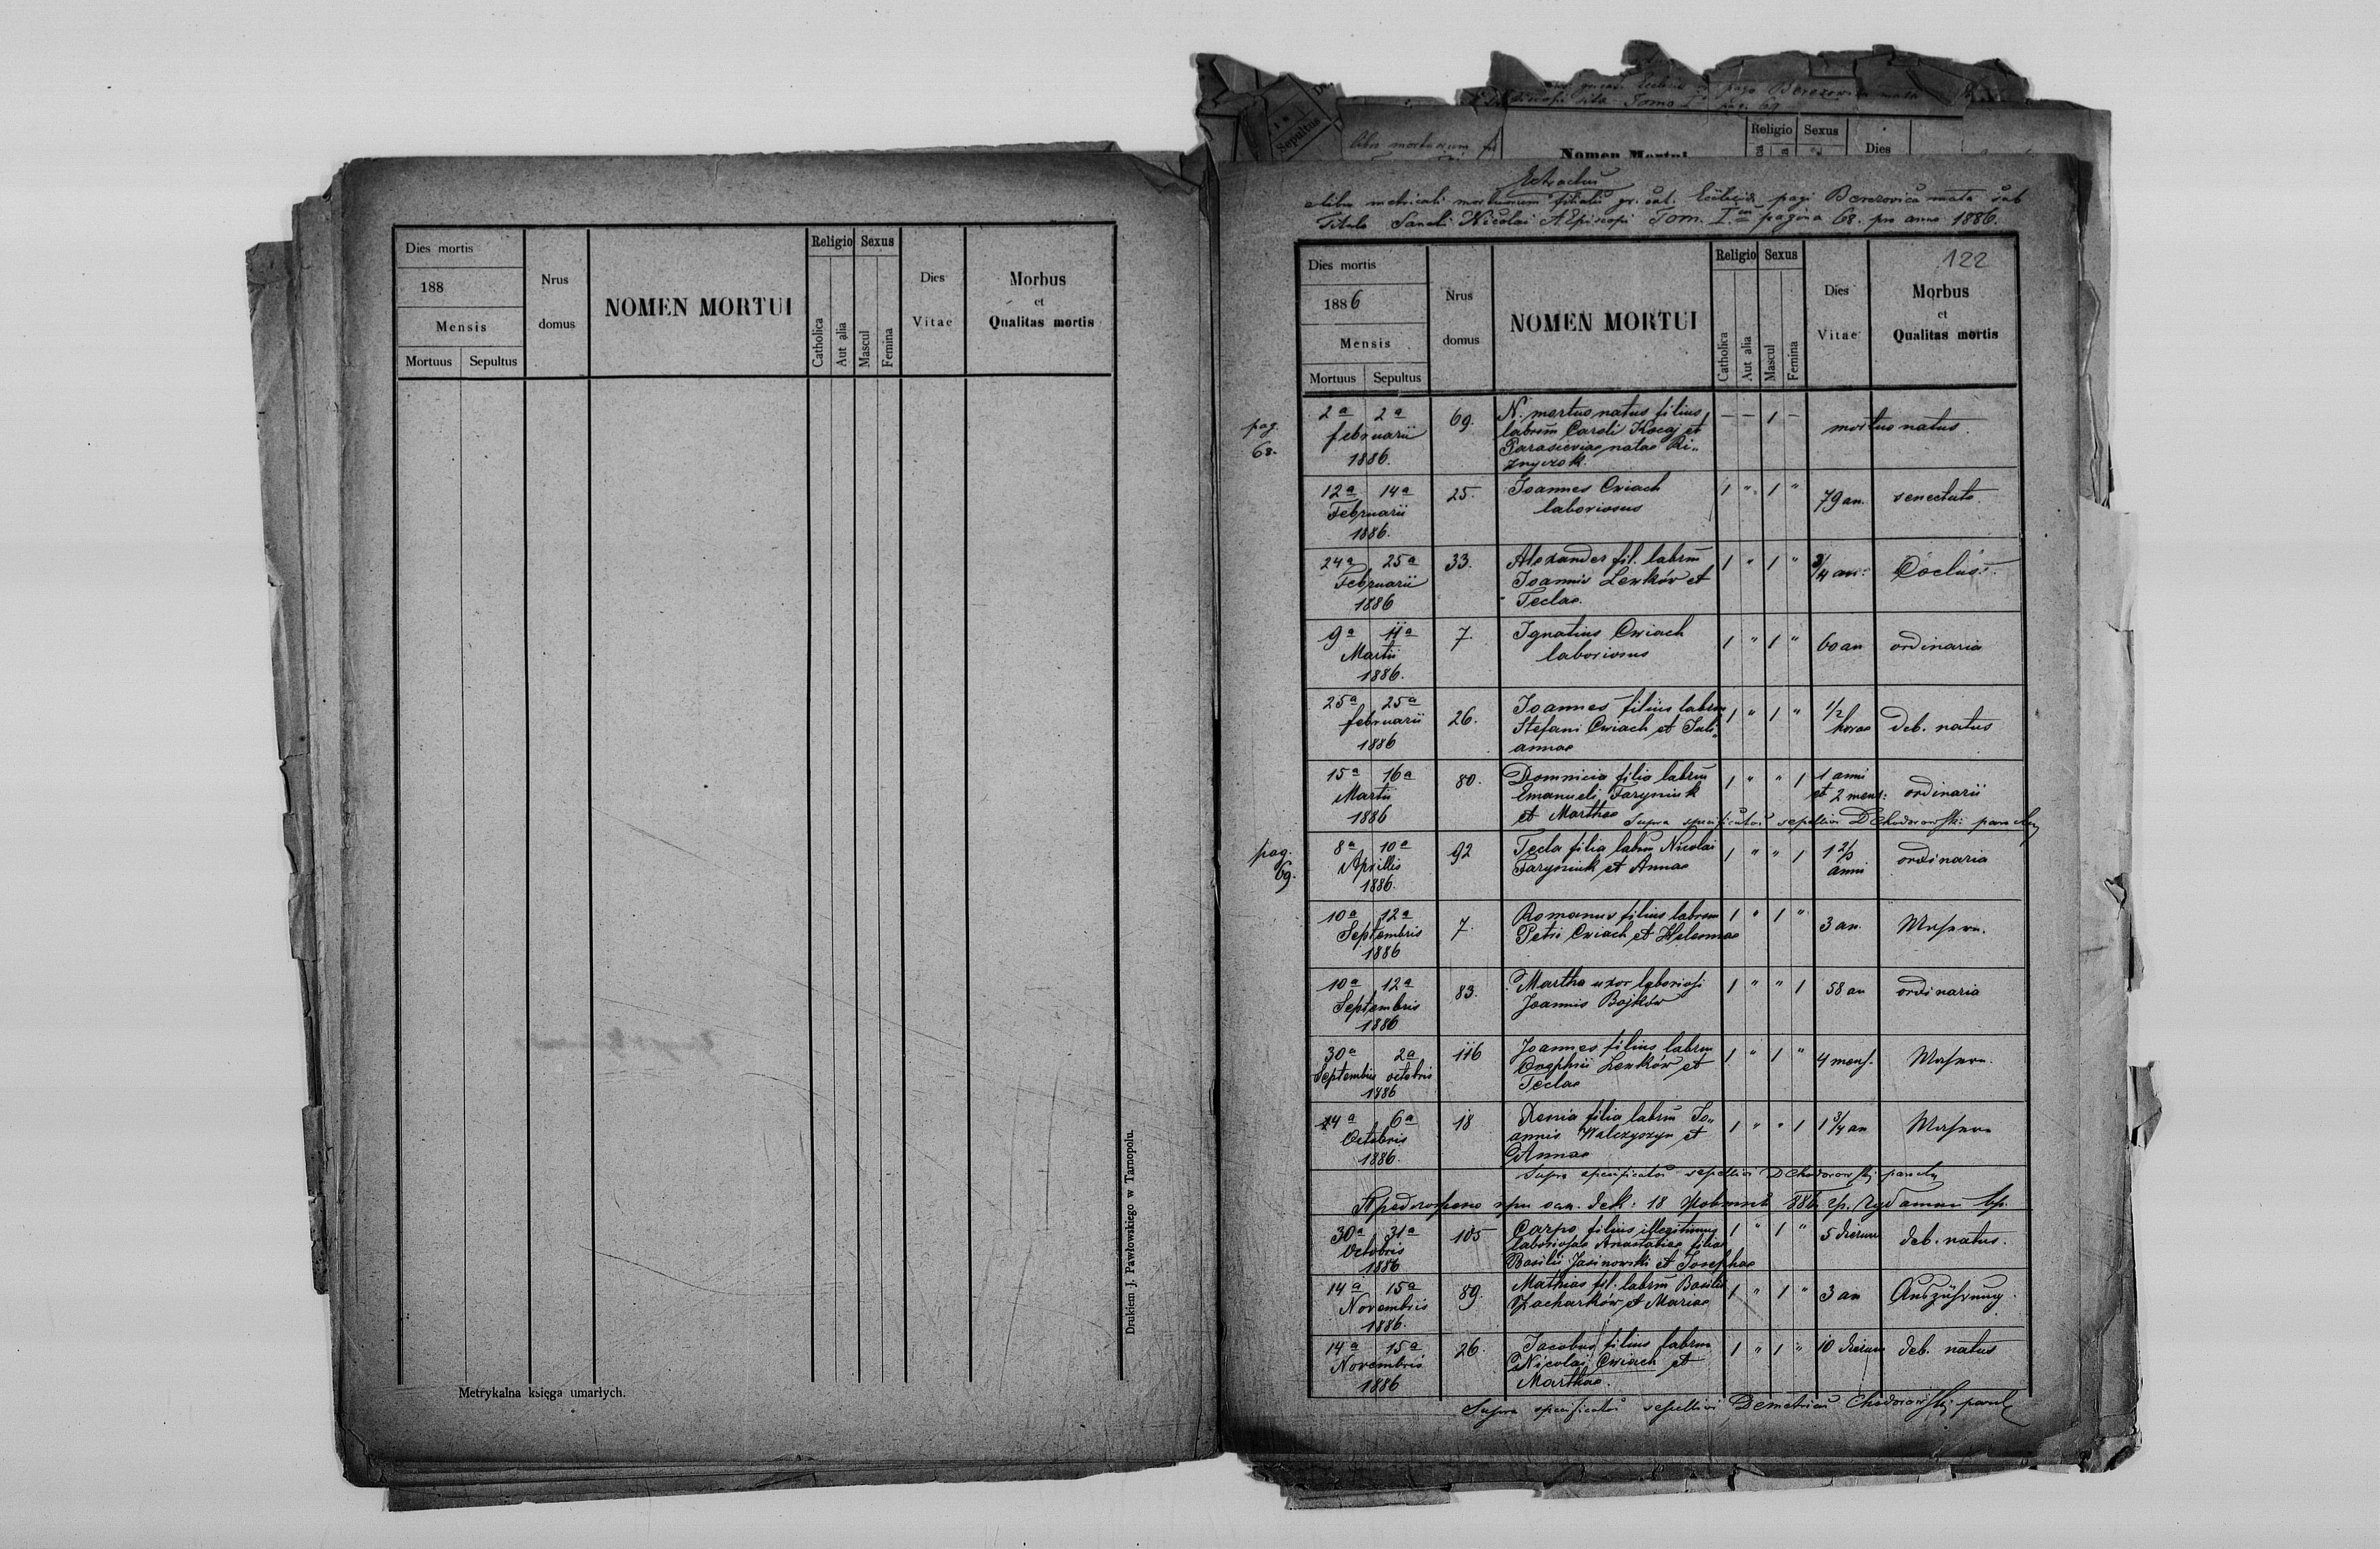 Dies mortis
188
Mensis
Mortuus Sepultus
Nrus
domus
NOMEN MORTUI
Religio Sexus
Catholica
Aut alia
Mascul
Femina
Dies
Vitae
Morbus
et
Qualitas mortis
Metrykalna księga umarłych.
Drukiem J. Pawłowskiego w Tarnopolu.
Sepultus
Nomen Mortui
Religio Sexus
Dies
Extractus
metricali mortuorum filialis gr. cat. Ecclesiae pagi Berezovica mała sub
Titulo Sancti Nicolai AEpiscopi Tom. I. pagina 68. pro anno 1886.
122
Dies mortis
1886
Mensis
Mortuus Sepultus
Nrus
domus
NOMEN MORTUI
Religio Sexus
Catholica
Aut alia
Mascul
Femina
Dies
Vitae
Morbus
et
Qualitas mortis
pag. 68.
2a 2a februarii 1886. 69. N. mortuo natus filius
labrum Caroli Kocaj et
Parasceviae natae Ri„
znyczok. — — 1 — mortuo natus.
12a 14a Februarii 1886. 25. Joannes Cwiach
laboriosus 1 " 1 " 79 an. senectute
24a 25a Februarii 1886 33. Alexander fil. labrum
Joannis Lewków et
Teclae. 1 " 1 " 3/4 an:
9a 11a Martii 1886. 7. Ignatius Cwiach
laboriosus 1 " 1 " 60 an ordinaria
25a 25a februarii 1886 26. Joannes filius labrum
Stefani Cwiach et Juli„
annae 1 " 1 " 1/2 horae deb. natus
15a 16a Martii 1886 80. Domnicia filia labrum
Emanueli Faryniuk
et Marthae 1 " " 1 1 anni et 2 mens: ordinarii
Supra specificatos sepelivi D Chodorowski paroch
pag. 69.
8a 10a Aprillis 1886. 92 Tecla filia labrum Nicolai
Faryniuk et Annae 1 " " 1 1 2/3 anni ordinaria
10a 12a Septembris 1886 7. Romanus filius labrum
Petri Cwiach et Helennae 1 " 1 " 3 an. Masern.
10a 12a Septembris 1886 83. Martha uxor laboriosi
Joannis Bojków 1 " " 1 58 an ordinaria
30a Septembris 2a octobris 1886 116 Joannes filius labrum
Onophrii Lewków et
Teclae 1 " 1 " 4 mens. Masern.
4a 6a Octobris 1886. 18 Xenia filia labrum Jo„
annis Walczyszyn et
Annae 1 " " 1 1 3/4 an Masern
Supra specificatos sepelivi D Chodorowski paroch
30a 31a Octobris 1886 105 Carpo filius illegitimus
laboriosae Anastasiae filiae
Basilii Jasinowski et Josephae 1 " 1 " 5 dierum deb. natus.
14a 15a Novembris 1886. 89. Mathias fil. labrum Basilii
Zacharków et Mariae 1 " 1 " 3 an Auszührung.
14a 15a Novembris 1886 26. Jacobus filius labrum
Nicolai Cwiach et
Marthae. 1 " 1 " 10 dierum deb. natus
Supra specificatos sepelivi Demetrius Chodorowski paroch